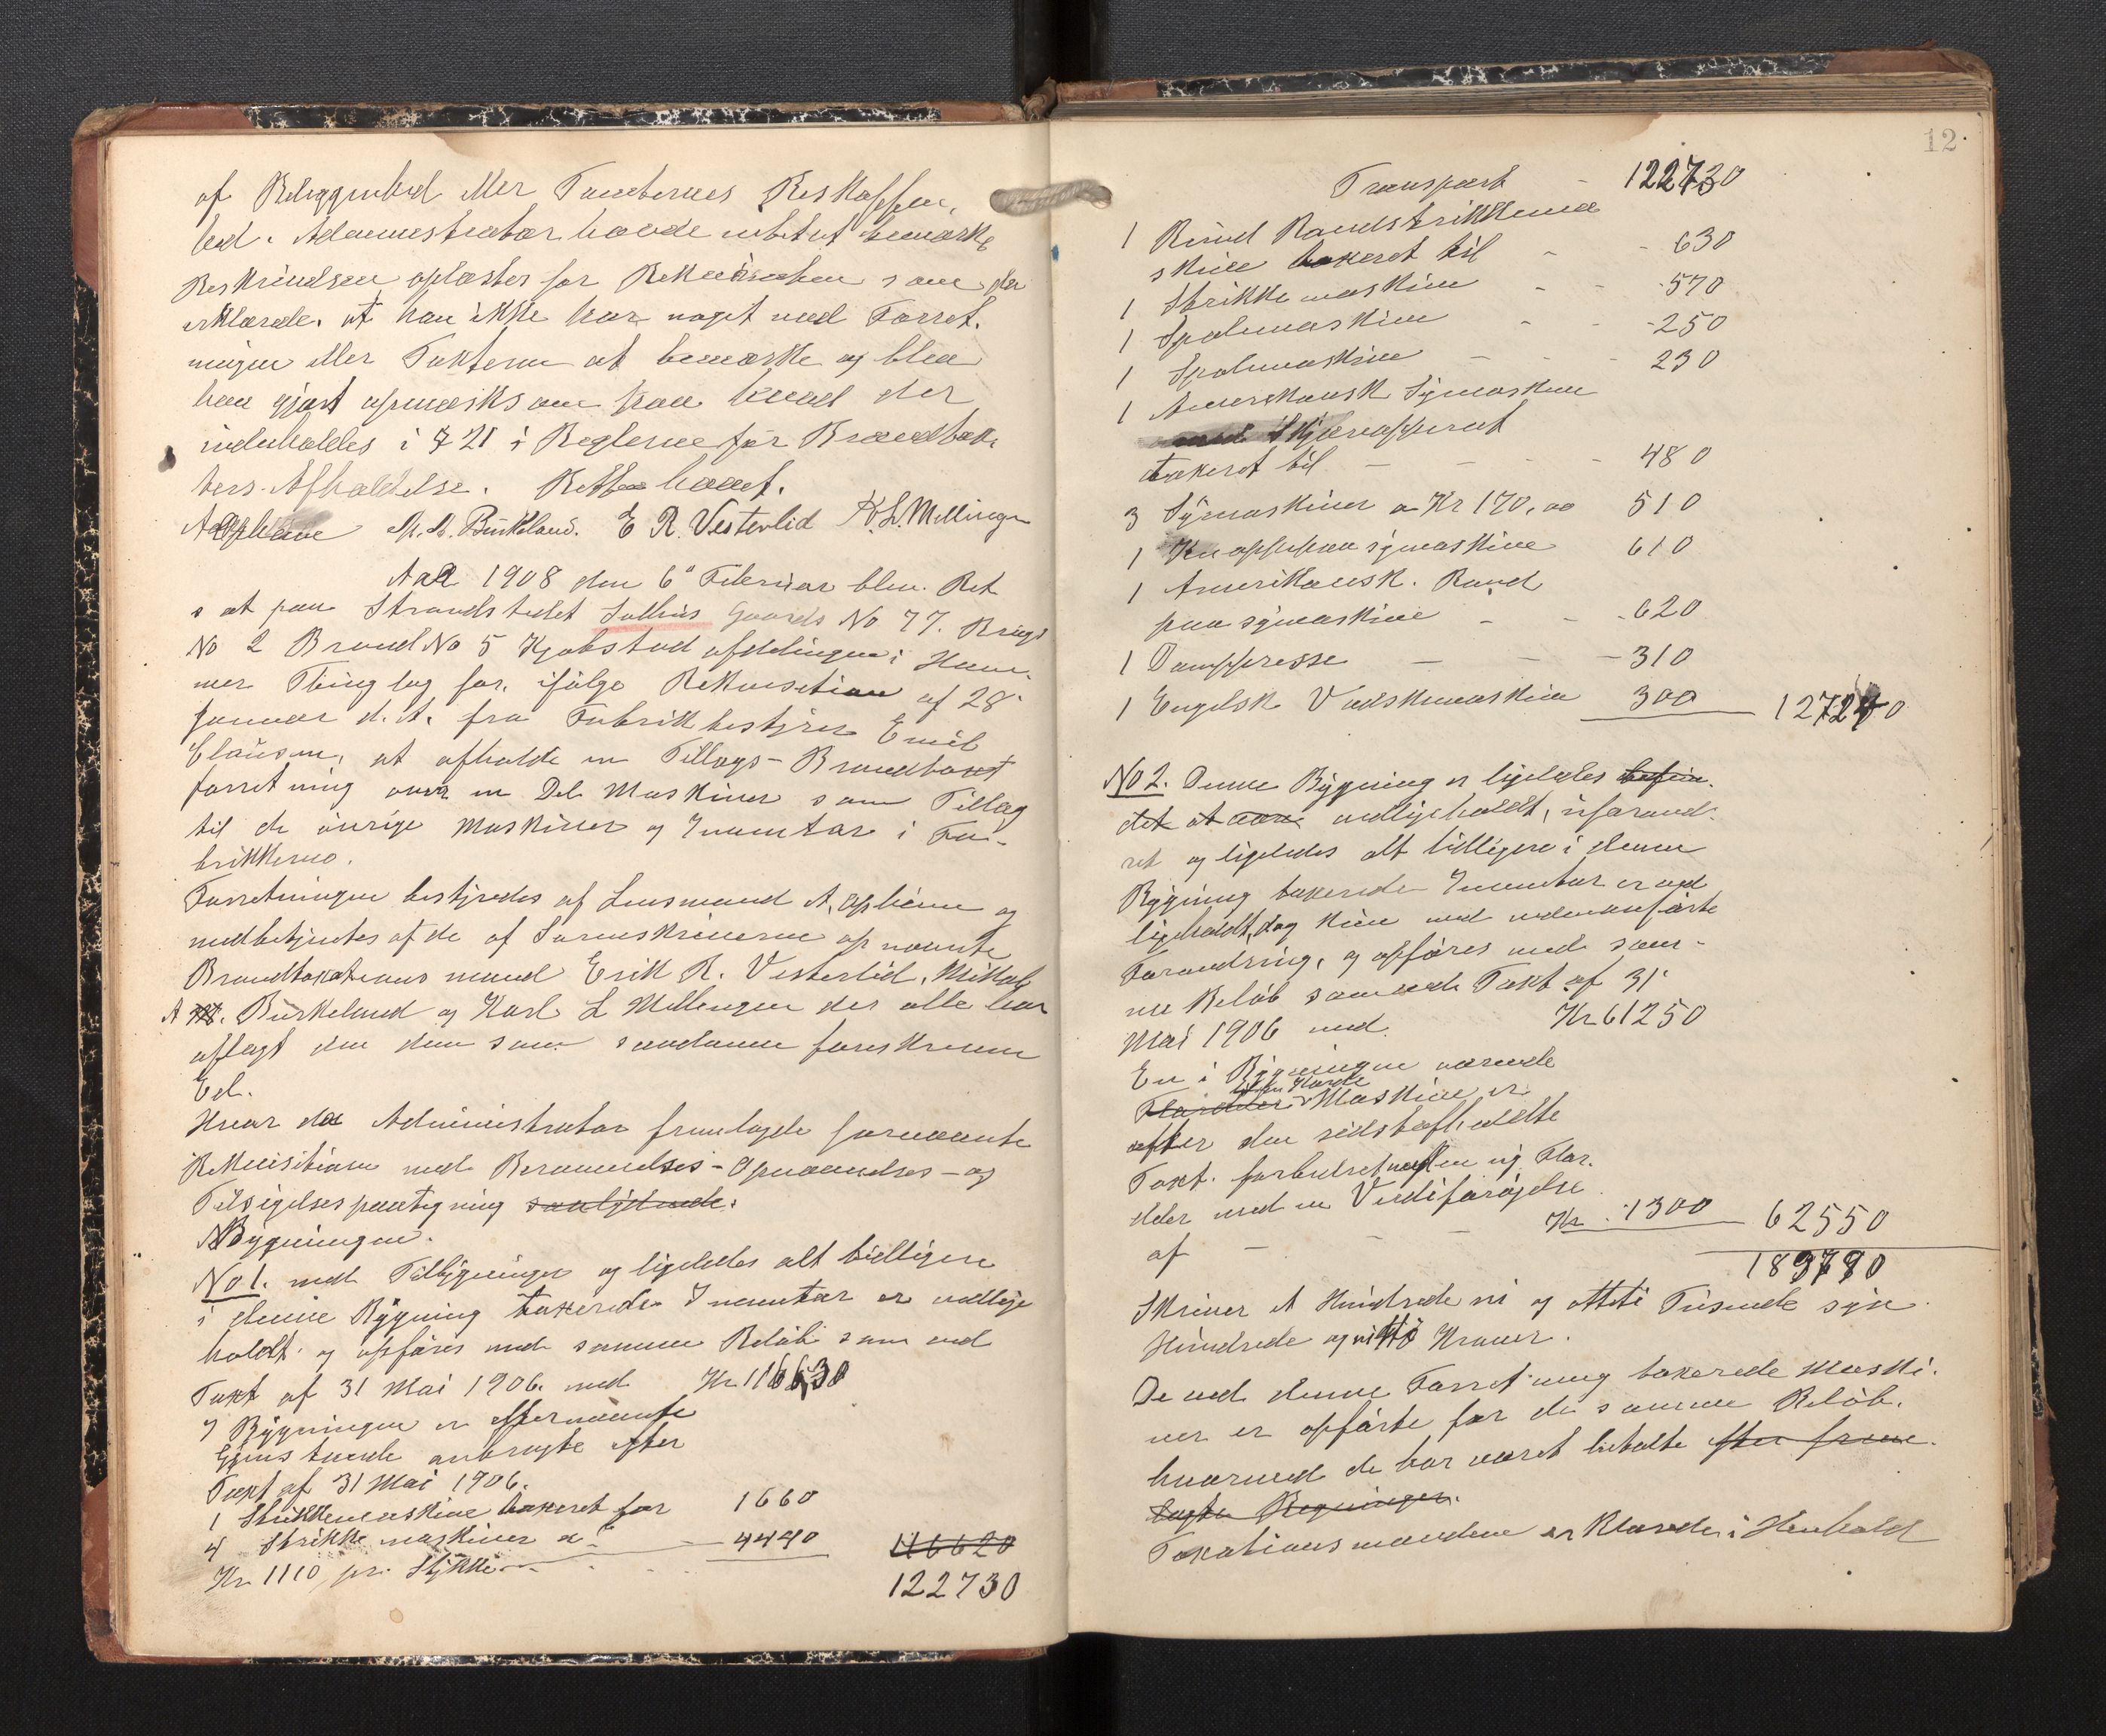 af Beliggenhed eller Tomternes Beskaffen,
hed. Administrator havde intet at bemærke
Beskrivelsen oplæstes for Rekvirenten som der
erklærede, at han ikke har noget ved Forret,
ningen eller Taxterne at bemærke og blev
han gjort opmærksom paa hvad der
indeholdes i § 21 i Reglerne for Brandtax,
ters Afholdelse. Retten hævet.
A Opheim M. A. Birkeland. E R. Vesterlid K. L. Mellingen
Aar 1908 den 6te Februar blev Ret
sat paa Strandstedet Salhus Gaards No 77. Brugs
No 2 Brand No 5 Kjøbstad afdelingen i Ham,
mer Thinglag for, ifølge Rekvisition af 28.
Januar d. A. fra Fabrikbestyrer Emil
Clausen, at afholde en Tillægs-Brandtaxt
forretning over en Del Maskiner som Tillæg
til de øvrige Maskiner og Inventar i Fa-
brikkerne.
Forretningen bestyredes af Lensmand A. Opheim og
medbetjentes af de af Sorenskriveren opnævnte
Brandtaxations mænd Erik R. Vesterlid, Mikal
A M. Birkeland og Karl L Mellingen der alle har
aflagt den dem som saadanne foreskrevne
Ed.
Hvor da Administrator fremlagde fornævnte
Rekvisition med Berammelses- Opnævnelses- og
Tilsigelses paategning saalydende.
Bygningen.
No 1. med Tilbygninger og ligeledes alt tidligere
i denne Bygning taxerede Inventar er vedlige
holdt og opføres med samme Beløb som ved
Taxt af 31 Mai 1906. med Kr 116630
I Bygningen er efternævnte
Gjenstande anbragte efter
Taxt af 31 Mai 1906.
1 Strikkemaskine taxeret for 1660
4 Strikke maskiner a - 4440 116620
Kr 1110 pr. Stykke - 122730
12.
Transport - 122730
1 Rund Randstrikkema
skine taxeret til - - 630
1 Strikkemaskine - - 570
1 Spolemaskine - - 250
1 Spolemaskine - - 230
1 Amerikansk Symaskine
med Skjæreapparat
taxeret til - - - - 480
3 Symaskiner a Kr 170,00 510
1 Knappepaasymaskine 610
1 Amerikansk. Rand
paasymaskine - - 620
1 Damppresse - - - 310
1 Engelsk Vadskemaskine 300 127240
No 2. Denne Bygning er ligeledes befun.
det at være vedligeholdt, uforand.
ret og ligeledes alt tidligere i denne
Bygning taxerede Inventar er ved
ligeholdt, dog kun med nedenanførte
Forandring, og opføres med sam-
me Beløb som ved Taxt af 31.
Mai 1906 med. Kr 61250
En i Bygningen værende
Maskine er
efter den sidstafholdte
Taxt. forbedret med en ny Flor.
deler med en Verdiforøjelse
af - - - Kr 1300 62550
189790
Skriver et Hundrede ni og otteti Tusende syv
Hundrede og nitti Kroner.
De ved denne Forretning taxerede Maski.
ner er opførte for de samme Beløb,
hvormed de har været betalte efter frem.
lagte Regninger.
Taxationsmændene erklærede i Henhold